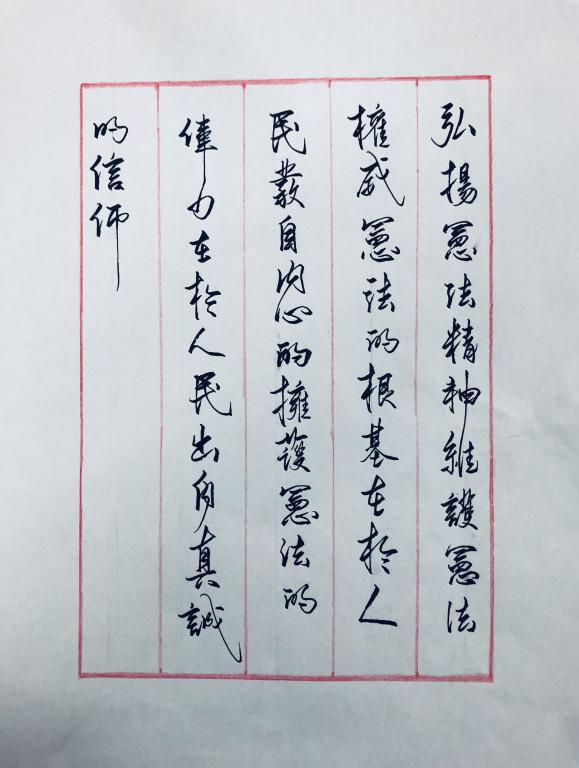 弘揚憲法精神維護憲法
權威憲法的根基在於人
民發自内心的擁護憲法的
偉力在於人民出自真誠
的信仰